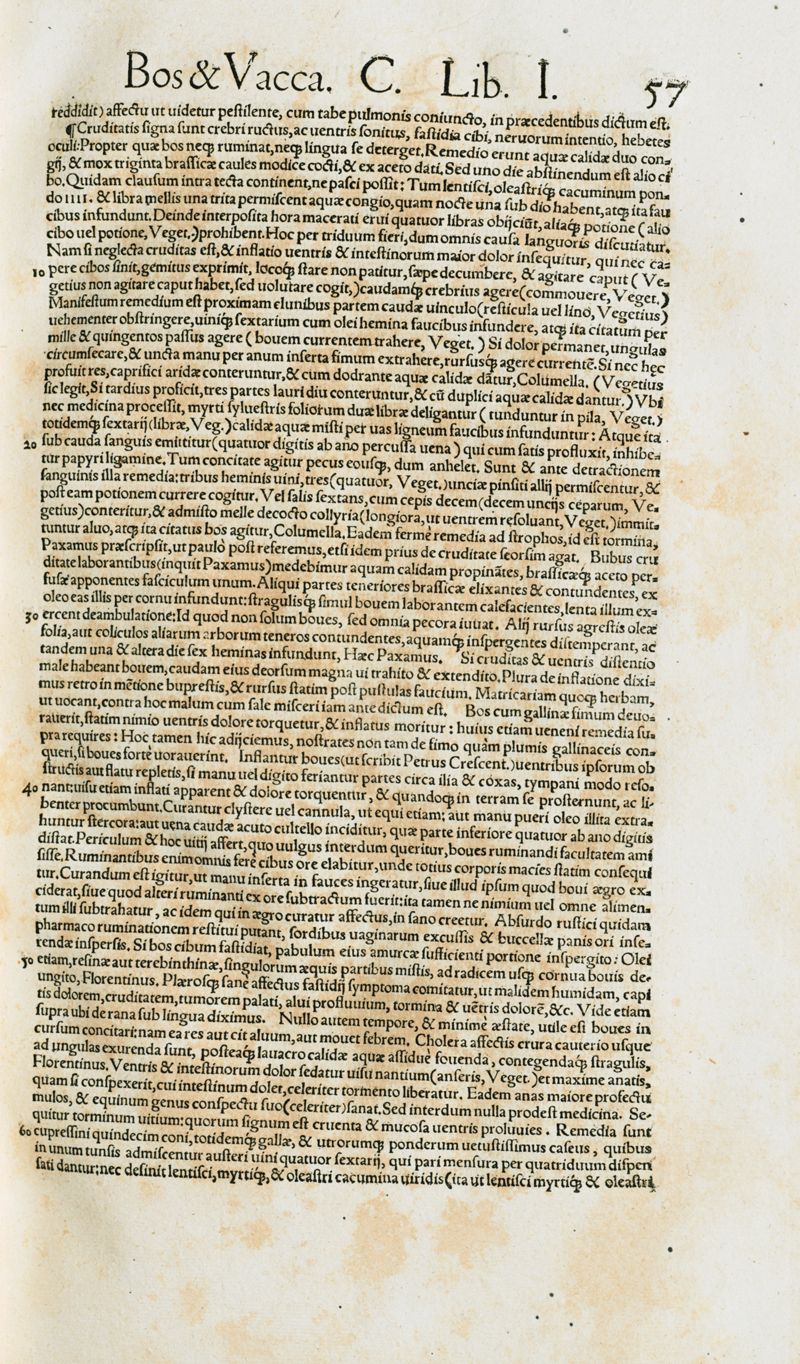 Bos & Vacca. C. Lib. I. 57
reddidit) affectu ut uidetur pestilente, cum tabe pulmonis coniuncto, in præcedentibus dictum est.
¶Cruditatis signa sunt crebri ructus, ac uentris sonitus, fastidia cibi, neruorum intentio, hebetes
oculi: Propter quæ bos neqꝫ ruminat, neqꝫ lingua se deterget. Remedio erunt aquæ calidæ duo con-
gij, & mox triginta brassicæ caules modice cocti, & ex aceto dati. Sed uno die abstinendum est alio ci
bo. Quidam clausum intra tecta continent, ne pasci possit: Tum lentisci, oleastriqꝫ cacuminum pon-
do IIII. & libra mellis una trita permiscent aquæ congio, quam nocte una sub dio habent, atqꝫ ita fau
cibus infundunt. Deinde interposita hora macerati erui quatuor libras obijciūt, aliaqꝫ potione (alio
cibo uel potione, Veget.) prohibent. Hoc per triduum fieri, dum omnis causa languoris discutiatur.
Nam si neglecta cruditas est, & inflatio uentris & intestinorum maior dolor insequitur, qui nec ca-
10 pere cibos sinit, gemitus exprimit, locoqꝫ stare non patitur, sæpe decumbere, & agitare caput (Ve-
getius non agitare caput habet, sed uolutare cogit,) caudamqꝫ crebrius agere (commouere, Veget.)
Manifestum remedium est proximam clunibus partem caudæ uinculo (resticula uel lino, Vegetius)
uehementer obstringere, uiniqꝫ sextarium cum olei hemina faucibus infundere, atqꝫ ita citatum per
mille & quingentos passus agere (bouem currentem trahere, Veget.) Si dolor permanet, ungulas
circumsecare, & uncta manu per anum inserta fimum extrahere, rursusqꝫ agere currentē. Si nec hęc
profuit res, caprifici aridæ conteruntur, & cum dodrante aquæ calidæ dātur, Columella. (Vegetius
sic legit, Si tardius proficit, tres partes lauri diu conteruntur, & cū duplici aquæ calidæ dantur.) Vbi
nec medicina processit, myrti syluestris foliorum duæ libræ deligantur (tunduntur in pila, Veget.)
totidemqꝫ sextarij (libræ, Veg.) calidæ aquæ misti per uas ligneum faucibus infunduntur: Atque ita
20 sub cauda sanguis emittitur (quatuor digitis ab ano percussa uena) qui cum satis profluxit, inhibe-
tur papyri ligamine. Tum concitate agitur pecus eousqꝫ, dum anhelet. Sunt & ante detractionem
sanguinis illa remedia: tribus heminis uini, tres (quatuor, Veget.) unciæ pinsiti allij permiscentur, &
post eam potionem currere cogitur. Vel salis sextans, cum cepis decem (decem uncijs ceparum, Ve-
getius) conteritur, & admisto melle decocto collyria (longiora, ut uentrem resoluant, Veget.) immit-
tuntur aluo, atqꝫ ita citatus bos agitur, Columella. Eadem fermè remedia ad strophos, id est tormina,
Paxamus præscripsit, ut paulò post referemus, etsi idem prius de cruditate seorsim agat. Bubus cru
ditate laborantibus (inquit Paxamus) medebimur aquam calidam propinātes, brassicæqꝫ aceto per-
fusæ apponentes fasciculum unum. Aliqui partes teneriores brassicæ elixantes & contundentes, ex
oleo eas illis per cornu infundunt: stragulisqꝫ simul bouem laborantem calefacientes, lenta illum ex-
30 ercent deambulatione: Id quod non solum boues, sed omnia pecora iuuat. Alij rursus agrestis oleæ
folia, aut coliculos aliarum arborum teneros contundentes, aquamqꝫ inspergentes distemperant, ac
tandem una & altera die sex heminas infundunt, Hæc Paxamus. Si cruditas & uentris distentio
male habeant bouem, caudam eius deorsum magna ui trahito & extendito. Plura de inflatione dixi-
mus retro in mētione buprestis, & rursus statim post pustulas faucium. Matricariam quoqꝫ herbam,
ut uocant, contra hoc malum cum sale misceri iam ante dictum est. Bos cum gallinæ fimum deuo-
rauerit, statim nimio uentris dolore torquetur, & inflatus moritur: huius etiam ueneni remedia su-
pra requires: Hoc tamen hic adijciemus, nostrates non tam de fimo quàm plumis gallinaceis con-
queri, si boues forte uorauerint. Inflantur boues (ut scribit Petrus Crescent.) uentribus ipsorum ob
structis aut flatu repletis, si manu uel digito feriantur partes circa ilia & coxas, tympani modo reso-
40 nant: uisu etiam inflati apparent & dolore torquentur, & quandoqꝫ in terram se prosternunt, ac li-
benter procumbunt. Curantur clystere uel cannula, ut equi etiam: aut manu pueri oleo illita extra-
huntur stercora: aut uena caudæ acuto cultello inciditur, quæ parte inferiore quatuor ab ano digitis
distat. Periculum & hoc uitij affert, quo uulgus interdum queritur, boues ruminandi facultatem ami
sisse. Ruminantibus enim omnis ferè cibus ore elabitur, unde totius corporis macies statim consequi
tur. Curandum est igitur, ut manu inserta in fauces ingeratur, siue illud ipsum quod boui ægro ex-
ciderat, siue quod alteri ruminanti ex ore subtractum fuerit: ita tamen ne nimium uel omne alimen-
tum illi subtrahatur, ac idem qui in ægro curatur affectus, in sano creetur. Absurdo rustici quidam
pharmaco ruminationem restitui putant, sordibus uaginarum excussis & buccellæ panis ori inse-
rendæ inspersis. Si bos cibum fastidiat, pabulum eius amurcæ sufficienti portione inspergito: Olei
50 etiam, resinæ aut terebinthinæ, singulorum æquis partibus mistis, ad radicem usqꝫ cornua bouis de-
ungito, Florentinus. Plærosqꝫ sanè affectus fastidij symptoma comitatur, ut malidem humidam, capi
tis dolorem, cruditatem, tumorem palati, alui profluuium, tormina & uētris dolorē, &c. Vide etiam
supra ubi de rana sub lingua diximus. Nullo autem tempore, & minimè æstate, utile est boues in
cursum concitari: nam ea res aut cit aluum, aut mouet febrem. Cholera affectis crura cauterio usque
ad ungulas exurenda sunt, posteaqꝫ lauacro calidæ aquæ assiduè fouenda, contegendaqꝫ stragulis,
Florentinus. Ventris & intestinorum dolor sedatur uisu nantium (anseris, Veget.) et maxime anatis,
quam si conspexerit, cui intestinum dolet, celeriter tormento liberatur. Eadem anas maiore profectu
mulos, & equinum genus conspectu suo (celeriter) sanat. Sed interdum nulla prodest medicina. Se-
quitur torminum uitium: quorum signum est cruenta & mucosa uentris proluuies. Remedia sunt
60 cupressini quindecim coni, totidemqꝫ gallæ, & utrorumqꝫ ponderum uetustissimus caseus, quibus
in unum tunsis admiscentur austeri uini quatuor sextarij, qui pari mensura per quatriduum dispen
sati dantur: nec definit lentisci, myrtiqꝫ, & oleastri cacumina uiridis (ita ut lentisci myrtiqꝫ & oleastri